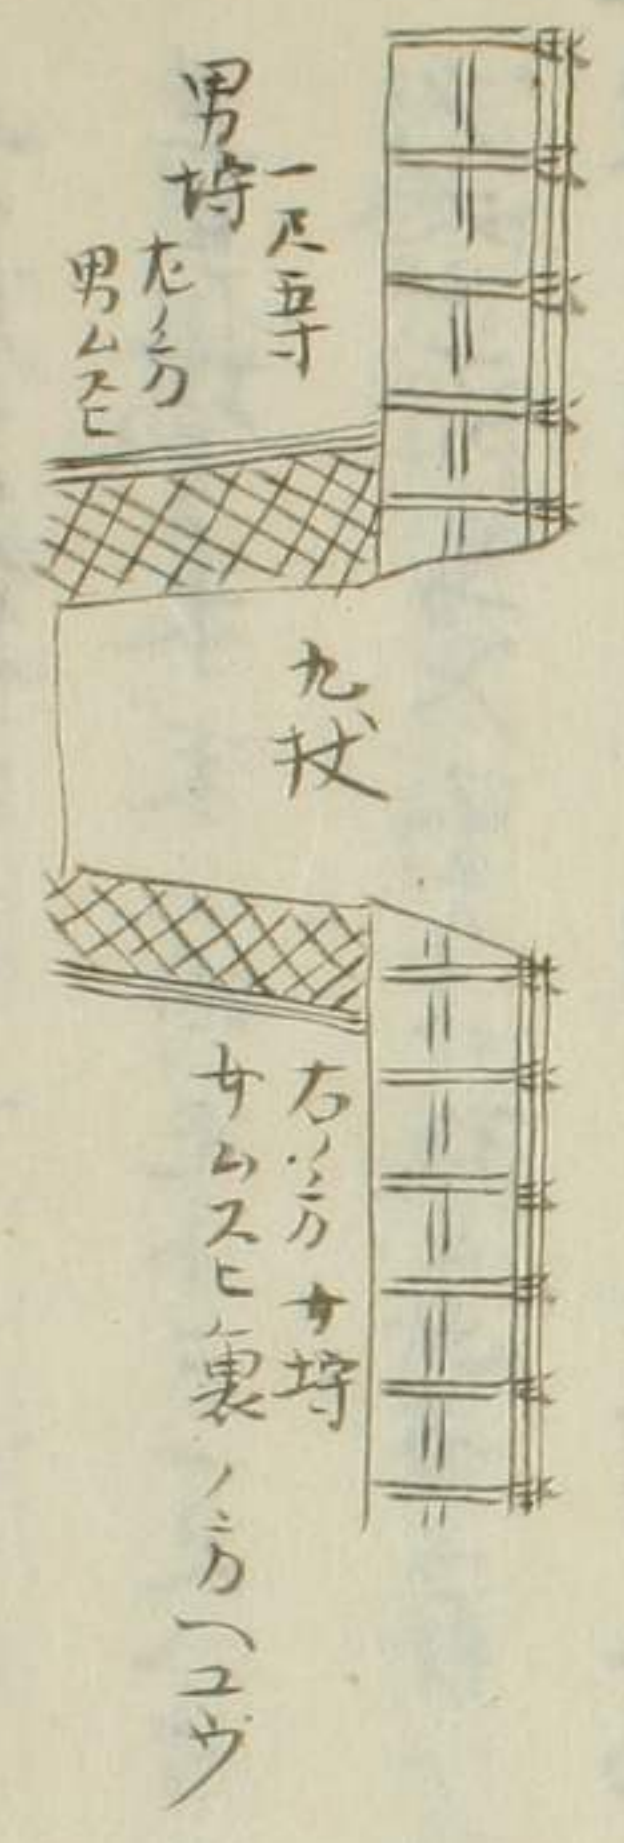 一尺五寸
男埒
左ノ方
男ムスヒ
九杖
右ノ方女埒
女ムスヒ裏ノ方ヘユウ